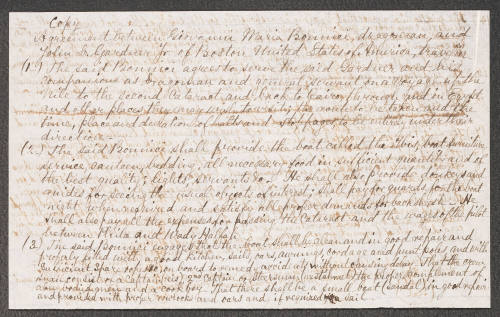 Copy
Agreement between Giovannia Maria Bonnici, dragoman, and
John L. Gardner Jr. of Boston United States of America, traveller
(1.) The said Bonnici agrees to serve the said Gardner and his
companions as Dragoman and general servant on a voyage up the
Nile to the second Cataract and back to Cairo
and other places they may
time, place and duration of halts and stoppages to be entirely under their
direction.
(2.) The said Bonnici shall provide the boat called the Ibis, boat furniture
service, canteen, bedding, all necessary food in sufficient quantity and of
the best quality, lights, servants &c. He shall also provide donkeys and
guides for seeing the usual objects of interest; shall pay for guards for the boat
at night and satisfy all proper demands for backsheesh. He
shall also pay all the expenses of passing the Cataract and the wages of the pilot
between Phila and Wady Halfah.
(3.) The said Bonnici engages that the boat shall be clean and in good repair and
properly fitted with a good kitchen, sails, oars, awnings, cordage and punt poles and with
sufficient spare ropes &c on board to remedy accidents without causing delay. That the crew
shall consist of a captain (reis), a second captain or steersman (mestahmel) the proper compliment of
able bodied men and a cook boy. That there shall be a small boat (sandal) in good repair
and provided with proper rowlocks and oars and if required a sail.